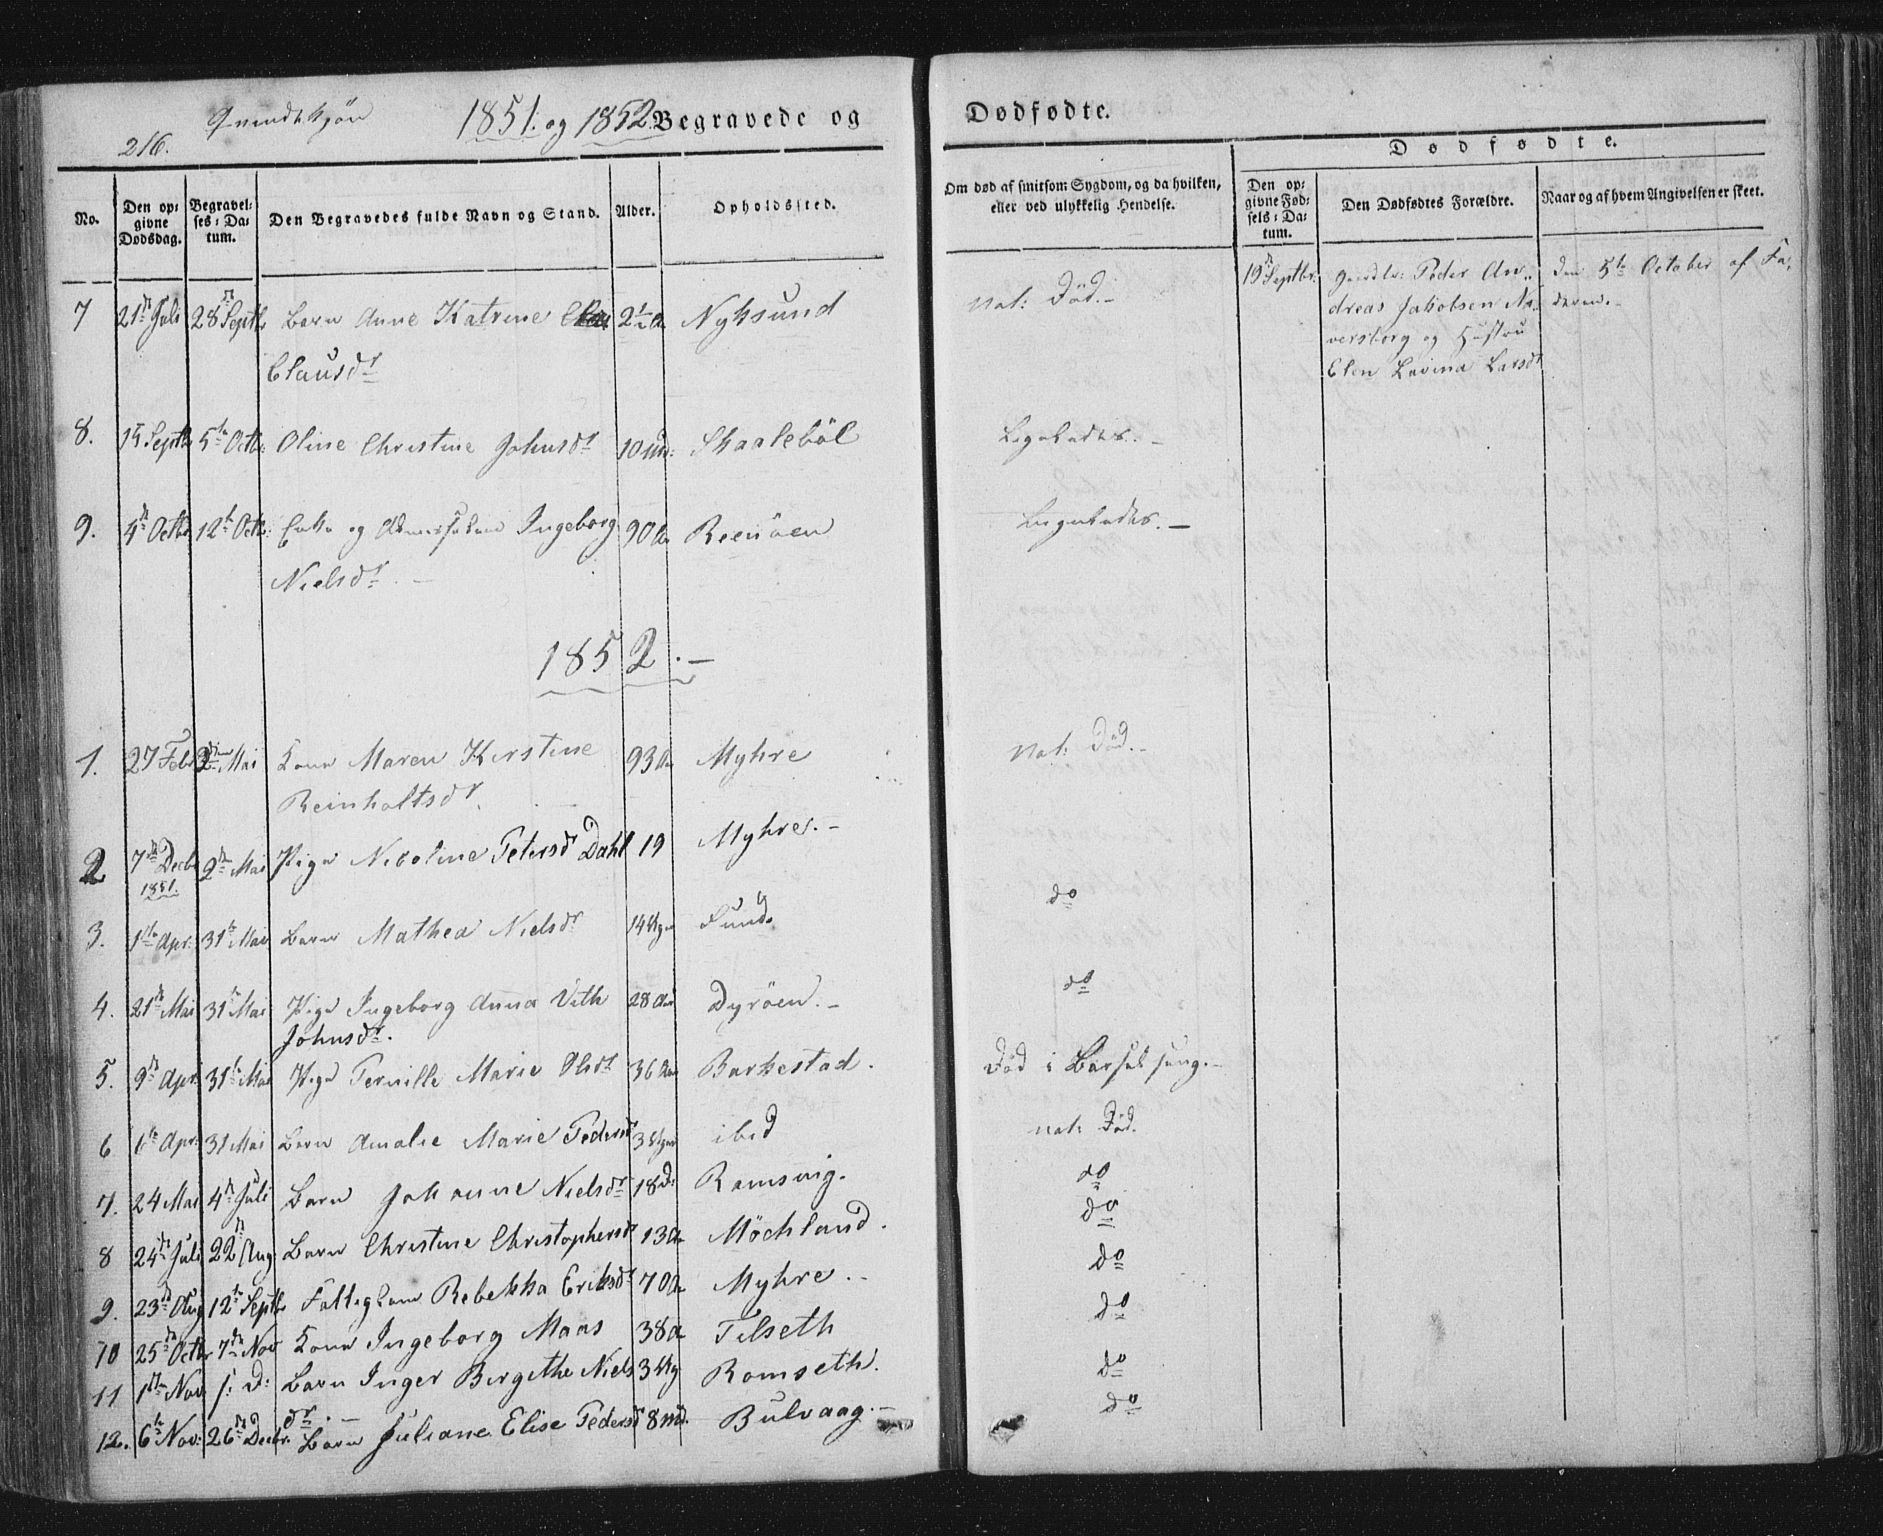 216.
Qvindekjön 1851. og 1852 Begravede og
Dødfødte.
Dødfødte.
No.
Den opgivne Dødsdag.
Begravelses-Datum.
Den Begravedes fulde Navn og Stand.
Alder.
Opholdssted.
Om død af smitsom Sygdom, og da hvilken, eller ved ulykkelig Hendelse.
Den opgivne Fødsels-Datum.
Den Dødfødtes Forældre.
Naar og af hvem Angivelsen er skeet.
7 21de Juli 28 Septbr Barn Anne Katrine 2½ Aar Nyksund nat: Död.-
Clausdr
19 Septbr. Peder An-
dreas Jakobsen
og Hustru
Elen Lavina Larsdr
den 5te October af Fa-
deren.-
8. 15 Septbr 5te Octbr: Oline Christine Johnsdr 10 md: Skaaleböl Ligeledes.-
9. 4de Octbr 12te Octbr: Enke og Ingeborg 90 Aar Reenöen Ligeledes.-
Nielsdr.-
1852.-
1. 27 Febr 2den Mai Kone Maren Kirstine 93 Aar Myhre Nat: Död.-
Reinholtsdr.
2 7de Decbr 1851. 2den Mai Pige Nicoline Petersdr Dahl 19 Myhre.-
3. 1te Apr: 31te Mai Barn Mathea Nielsdr 14 Uger do
4. 21de Mai 31te Mai Pige Ingeborg Anna Vith 28 Aar Dyröen.- do
Johnsdr.
5. 9de Apr. 31te Mai Pige Pernille Marie Olsdr 36 Aar Barkestad. Död i Barselseng.-
6 6te Apr: 31 Mai Barn Amalie Marie Pedersdr 3 Uger ibid nat: Död.
7. 24 Mai 4de Juli Barn Johanne Nielsdr 18 D: Ramsvig. do
8 24de Juli 22de Aug: Barn Christine Christophersdr 13 Aar Möckland. do
9. 23de Aug 12te Septbr Fattiglem Rebekka Eriksdr 70 Aar Myhre.- do
10 25de Octbr 7de Nov Kone Ingeborg Maas 38 Aar Tilseth do
11 1te Nov s: D: Barn Inger Bergithe Niels 3 Ug Romseth. do
dr.-
12. 6te Nov: 26de Decbr. Barn Juliane Elise Pedersdr 8 md. Bulvaag.- do